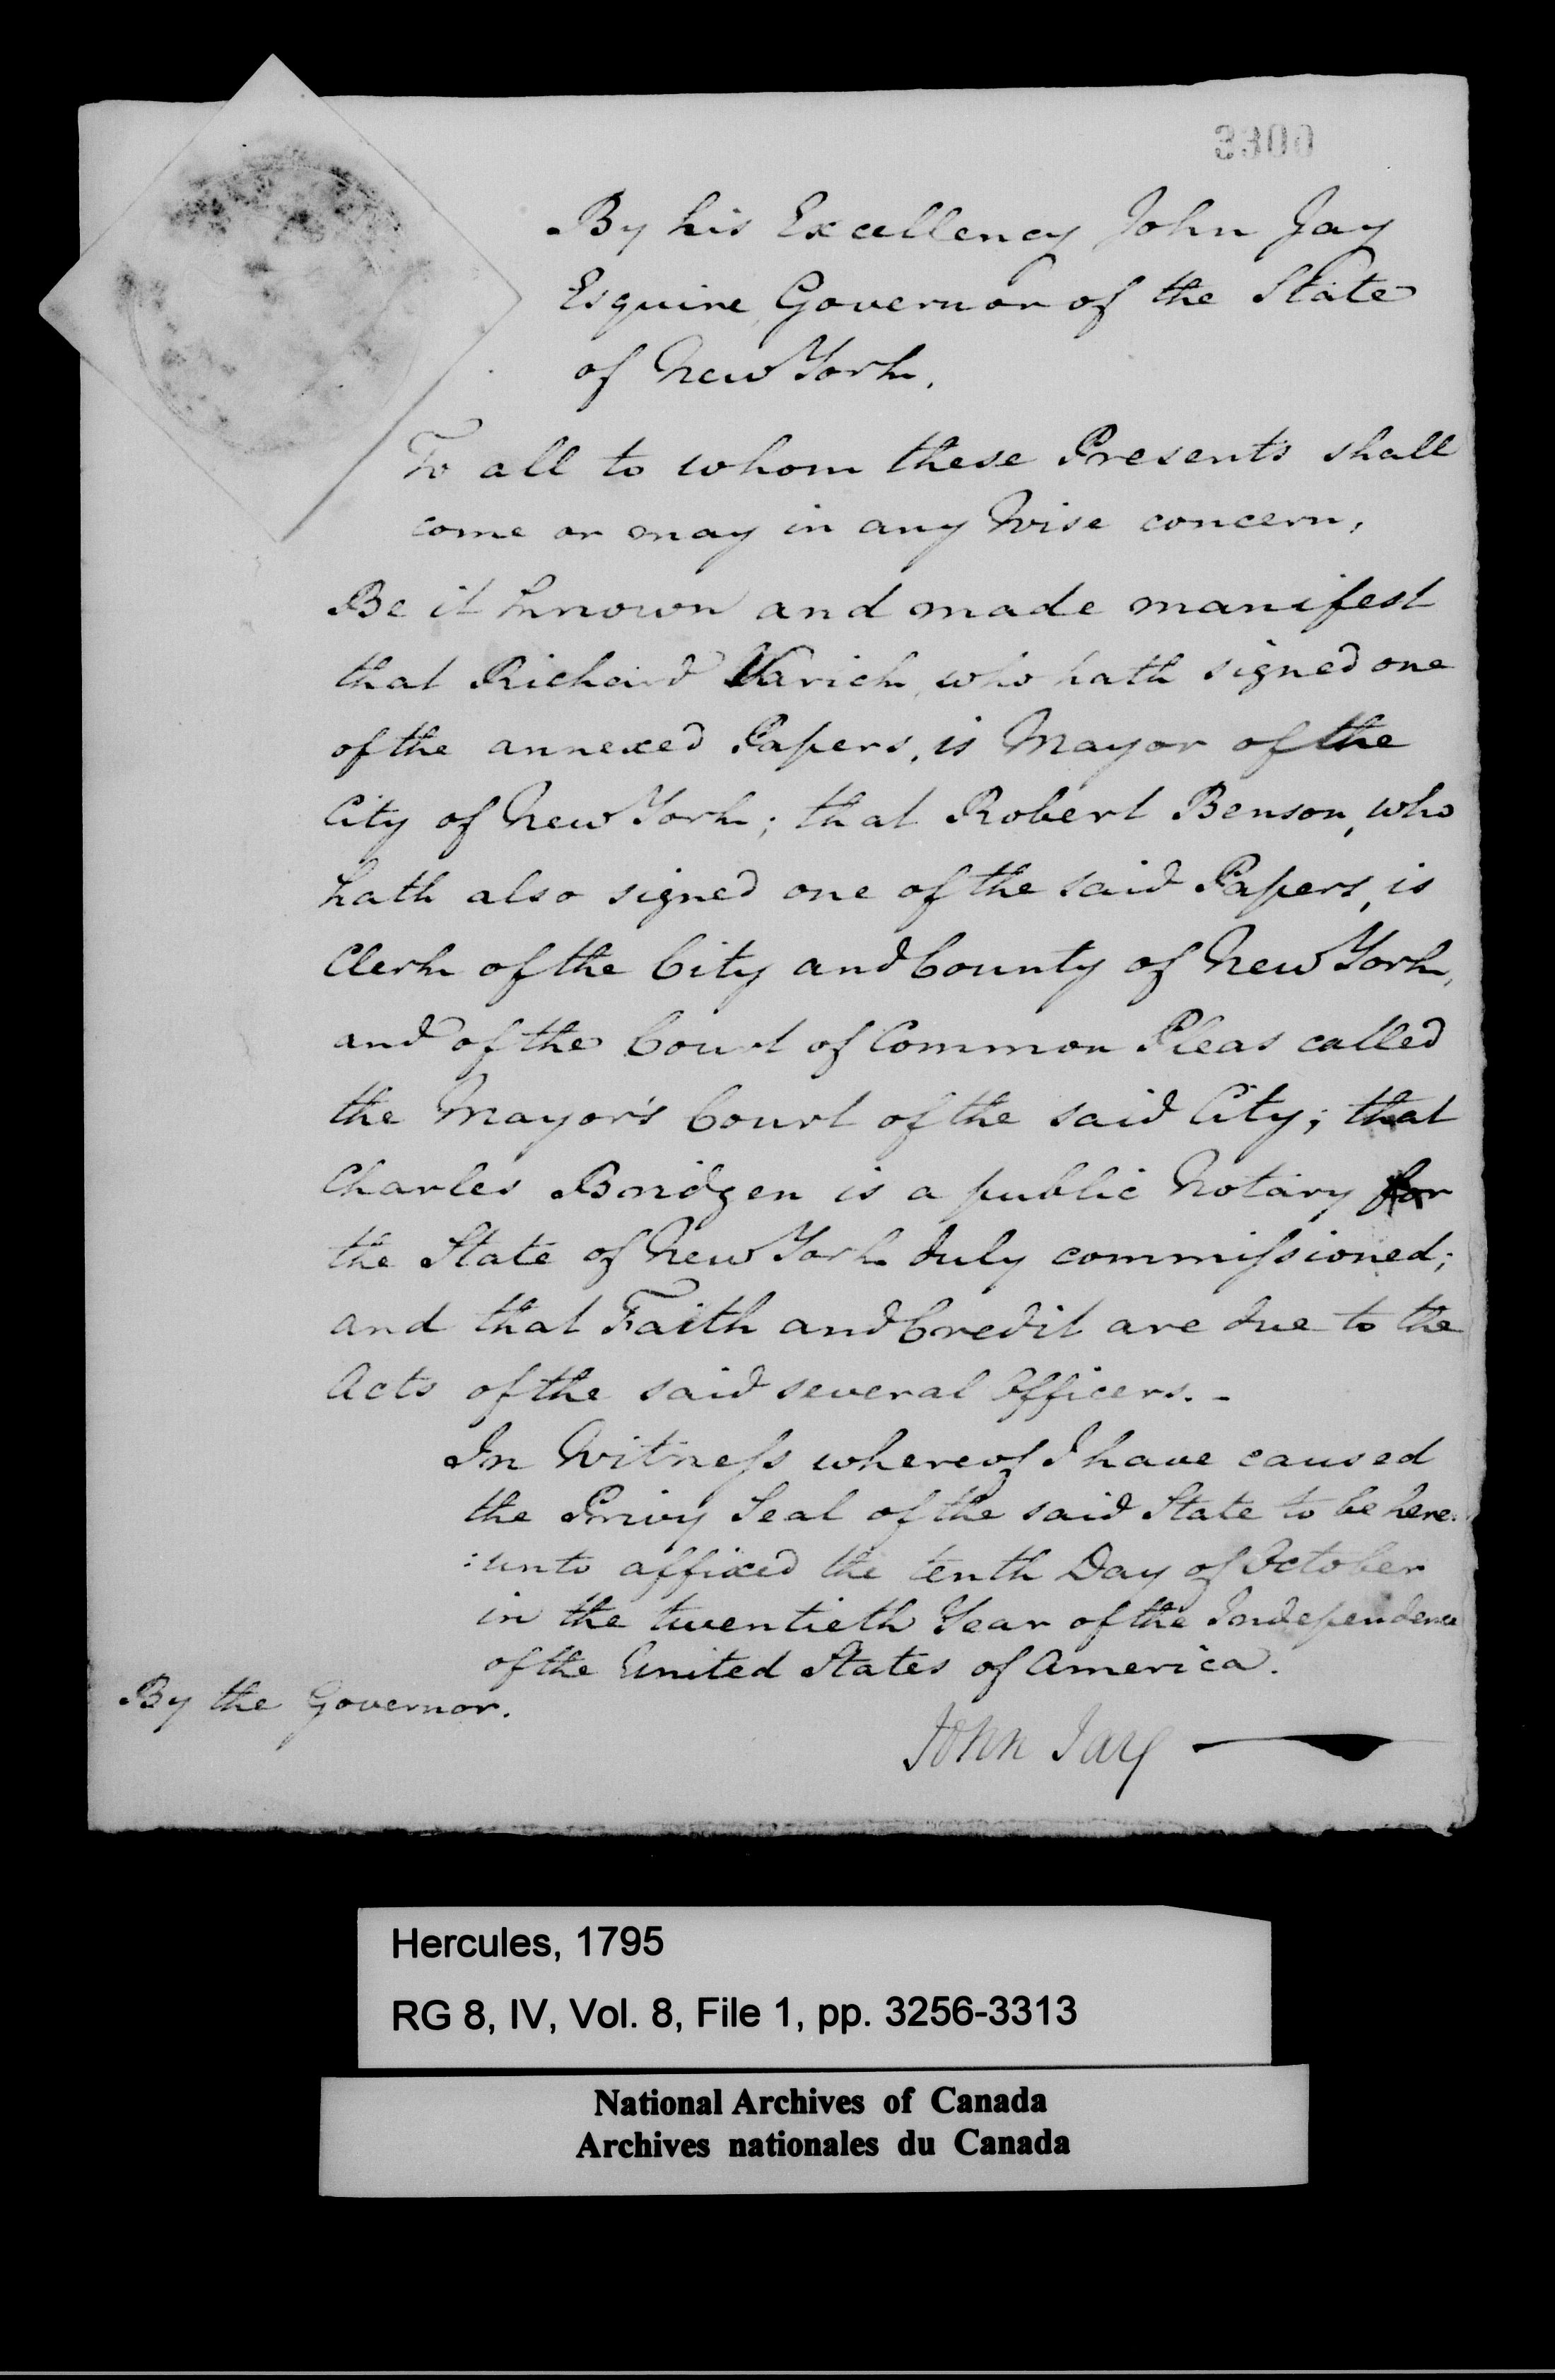 3300
By his Excellency John Jay
Esquire, Governor of the State
of New York.
To all to whom these Presents shall
come or may in any Wise concern,
Be it known and made manifest
that Richard Varick, who hath signed one
of the annexed Papers, is Mayor of the
City of New York; that Robert Benson, who
hath also signed one of the said Papers, is
Clerk of the City and County of New York,
and of the Court of Common Pleas called
the Mayor's Court of the said City; that
Charles Bridgen is a public Notary for
the State of New York duly commissioned;
and that Faith and Credit are due to the
Acts of the said several Officers. -
In Witness whereof I have caused
the Privy Seal of the said State to be here:
:unto affixed the tenth Day of October
in the twentieth Year of the Independence
of the United States of America.
By the Governor.
John Jay
Hercules, 1795
RG 8, IV, Vol. 8, File 1, pp. 3256-3313
National Archives of Canada
Archives nationales du Canada